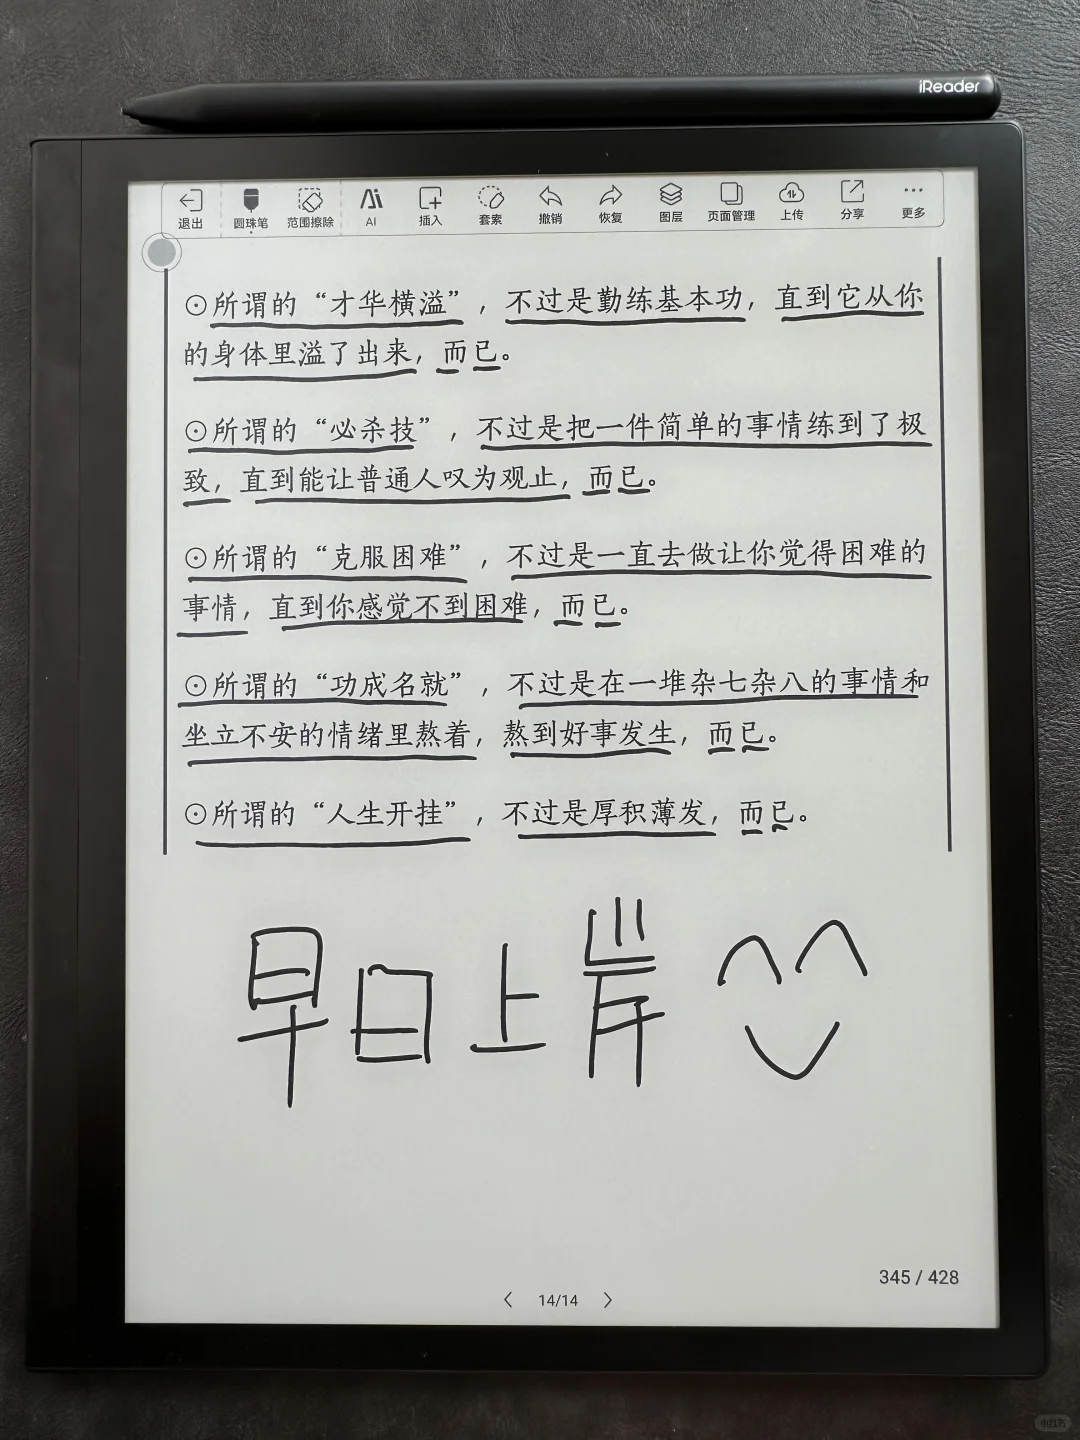 iReader
退出 圆珠笔 范围擦除 AI 插入 套索 撤销 恢复 图层 页面管理 上传 分享 更多
⊙所谓的“才华横溢”，不过是勤练基本功，直到它从你
的身体里溢了出来，而已。
⊙所谓的“必杀技”，不过是把一件简单的事情练到了极
致，直到能让普通人叹为观止，而已。
⊙所谓的“克服困难”，不过是一直去做让你觉得困难的
事情，直到你感觉不到困难，而已。
⊙所谓的“功成名就”，不过是在一堆杂七杂八的事情和
坐立不安的情绪里熬着，熬到好事发生，而已。
⊙所谓的“人生开挂”，不过是厚积薄发，而已。
早日上岸
345 / 428
14/14
小红书